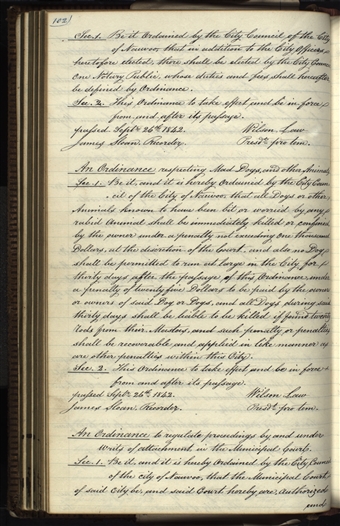 102
Sec. 1. Be it Ordained by the City Council of the City
of Nauvoo that in addition to the City officers
heretofore elected, there shall be elected by the City Council
One Notary Public, whose duties and fees shall hereafter
be defined by Ordinance.
Sec. 2. This Ordinance to take effect and be in force
from and after its passage.
passed Septr. 26th 1842. Wilson Law
James Sloan, Recorder. Presdt. pro tem.
An Ordinance respecting Mad Dogs, and other Animals.
Sec. 1. Be it, and it is hereby Ordained by the City Coun
cil of the City of Nauvoo, that all Dogs or other
Animals known to have been bit or worried by any
rabid Animal shall be immediately killed or confined
by the owner under a penalty not exceeding One thousand
Dollars, at the discretion of the Court, and also no Dog
shall be permitted to run at large in the City for
thirty days after the passage of this Ordinance, under
a penalty of twenty five Dollars to be paid by the owner
or owners of said Dog or Dogs, and all Dogs during said
thirty days shall be liable to be killed if found twenty
rods from their Masters, and such penalty or penalties
shall be recoverable and applied in like manner as
are other penalties within this City.
Sec. 2. This Ordinance to take effect and be in force
from and after its passage.
passed Septr. 26th 1842. Wilson Law
James Sloan, Recorder. Presdt. pro tem.
An Ordinance to regulate proceedings by and under
writs of attachment in the Municipal Court.
Sec. 1. Be it, and it is hereby Ordained by the City Council
of the city of Nauvoo, that the Municipal Court
of said City be and said Court hereby are, authorized
and